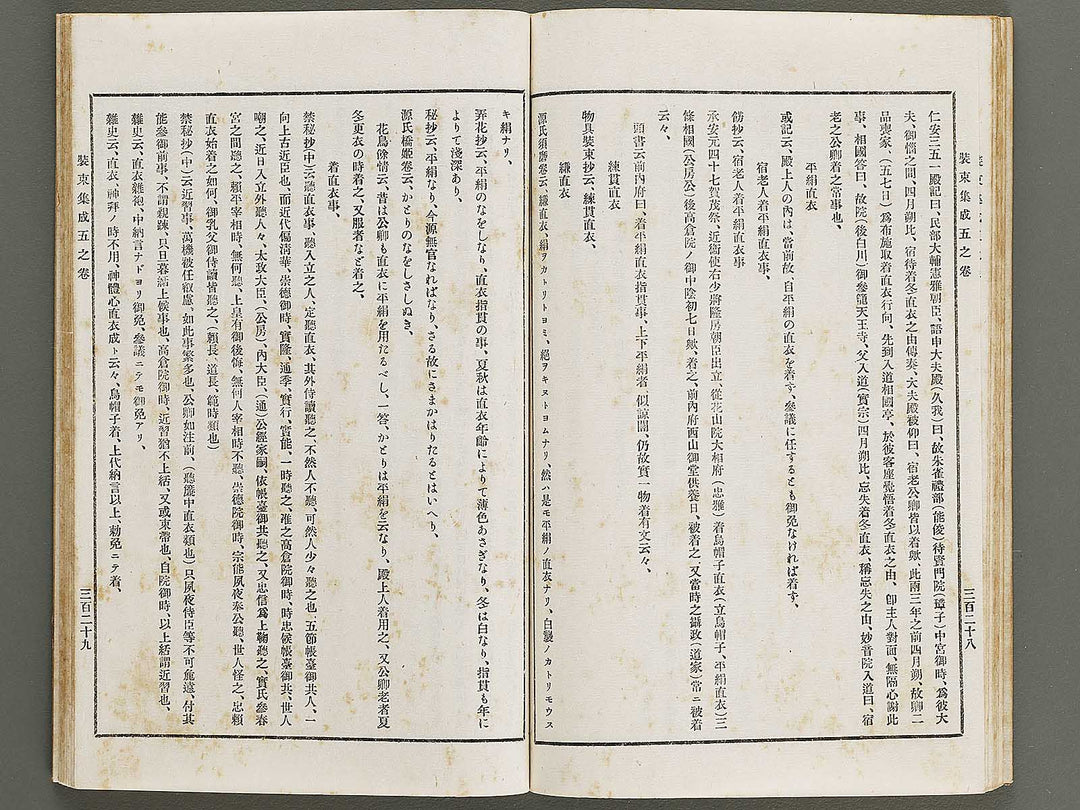 仁安三五一殿記曰、民部大輔憲雅朝臣、語申大夫殿(久我)曰、故朱雀禮部(能俊)待賢門院(璋子)中宮御時、爲彼大
夫、御惱之間、四月朔比、宿侍着冬直衣之由傳奏、大夫殿被仰曰、宿老公卿皆以着歟、此兩三年之前四月朔、故卿二
品喪家、(五七日)爲布施取着直衣行向、先到入道相國亭、於彼客座覺悟着冬直衣之由、卽主人對面、無隔心謝此
事、相國答曰、故院(後白川)御參籠天王寺、父入道(實宗)四月朔比、忘失着冬直衣、稱忘失之由、妙音院入道曰、宿
老之公卿着之常事也、
平絹直衣
或記云、殿上人の內は、當前故、自平絹の直衣を着す、參議に任するとも御免なければ着す、
宿老人着平絹直衣事、
餝抄云、宿老人着平絹直衣事
承安元四十七賀茂祭、近衞使右少將隆房朝臣出立、從花山院大相府(忠雅)着烏帽子直衣(立烏帽子、平絹直衣)三
條相國(公房公)後高倉院ノ御中陰初七日歟、着之、前內府西山御堂供養日、被着之、又當時之攝政(道家)常ニ被着
云々、
頭書云前內府曰、着平絹直衣指貫事、上下平絹者、似諒闇、仍故實一物着有文云々、
練貫直衣
物具裝束抄云、練貫直衣、
縑直衣
源氏須磨卷云、縑直衣、絹ヲカトリトヨミ、絕ヲキヌトヨムナリ、然ハ是モ平絹ノ直衣ナリ、白襲ノカトリモウス
裝束集成五之卷
三百二十八
キ絹ナリ、
弄花抄云、平絹のなをしなり、直衣指貫の事、夏秋は直衣年齡によりて薄色あさぎなり、冬は白なり、指貫も年に
よりて淺深あり、
秘抄云、平絹なり、今源無官なればなり、さる故にさまかはりたるとはいへり、
源氏橋姬卷云、かとりのなをしさしぬき、
花鳥餘情云、昔は公卿も直衣に平絹を用たるべし、一答、かとりは平絹を云なり、殿上人着用之、又公卿老者夏
冬更衣の時着之、又服者など着之、
着直衣事、
禁秘抄(中)云聽直衣事、聽入立之人、定聽直衣、其外侍讀聽之、不然人不聽、可然人少々聽之也、五節帳臺御共人、一
向上古近臣也、而近代偏淸華、崇德御時、實隆、通季、實行、實能、一時聽之、准之高倉院御時、時忠候帳臺御共、世人
嘲之、近日入立外聽人々、太政大臣、(公房)、內大臣、(通)公經家嗣、依帳臺御共聽之、又忠信爲上鞠聽之、實氏參春
宮之間聽之、賴平宰相時、無何聽、上皇有御後悔、無何人宰相時不聽、崇德院御時、宗能夙夜奉公聽、世人怪之、忠賴
直衣始着之如何、御乳父御侍讀皆聽之、(賴長、道長、範時類也)
禁秘抄(中)云近習事、萬機被任叡慮、如此事繁多也、公卿如注前、(聽簾中直衣類也)只夙夜侍臣等不可麁遠、付其
能參御前事、不謂親踈、只旦暮祗上候事也、高倉院御時、近習猶不上括、又或束帶也、自院御時、以上括謂近習也、
雜史云、直衣雜袍、中納言ナドヨリ御免、參議ニテモ御免アリ、
雜史云、直衣、神拜ノ時不用、神體心直衣成ト云々、烏帽子着、上代納言以上、勅免ニテ着、
裝束集成五之卷
三百二十九